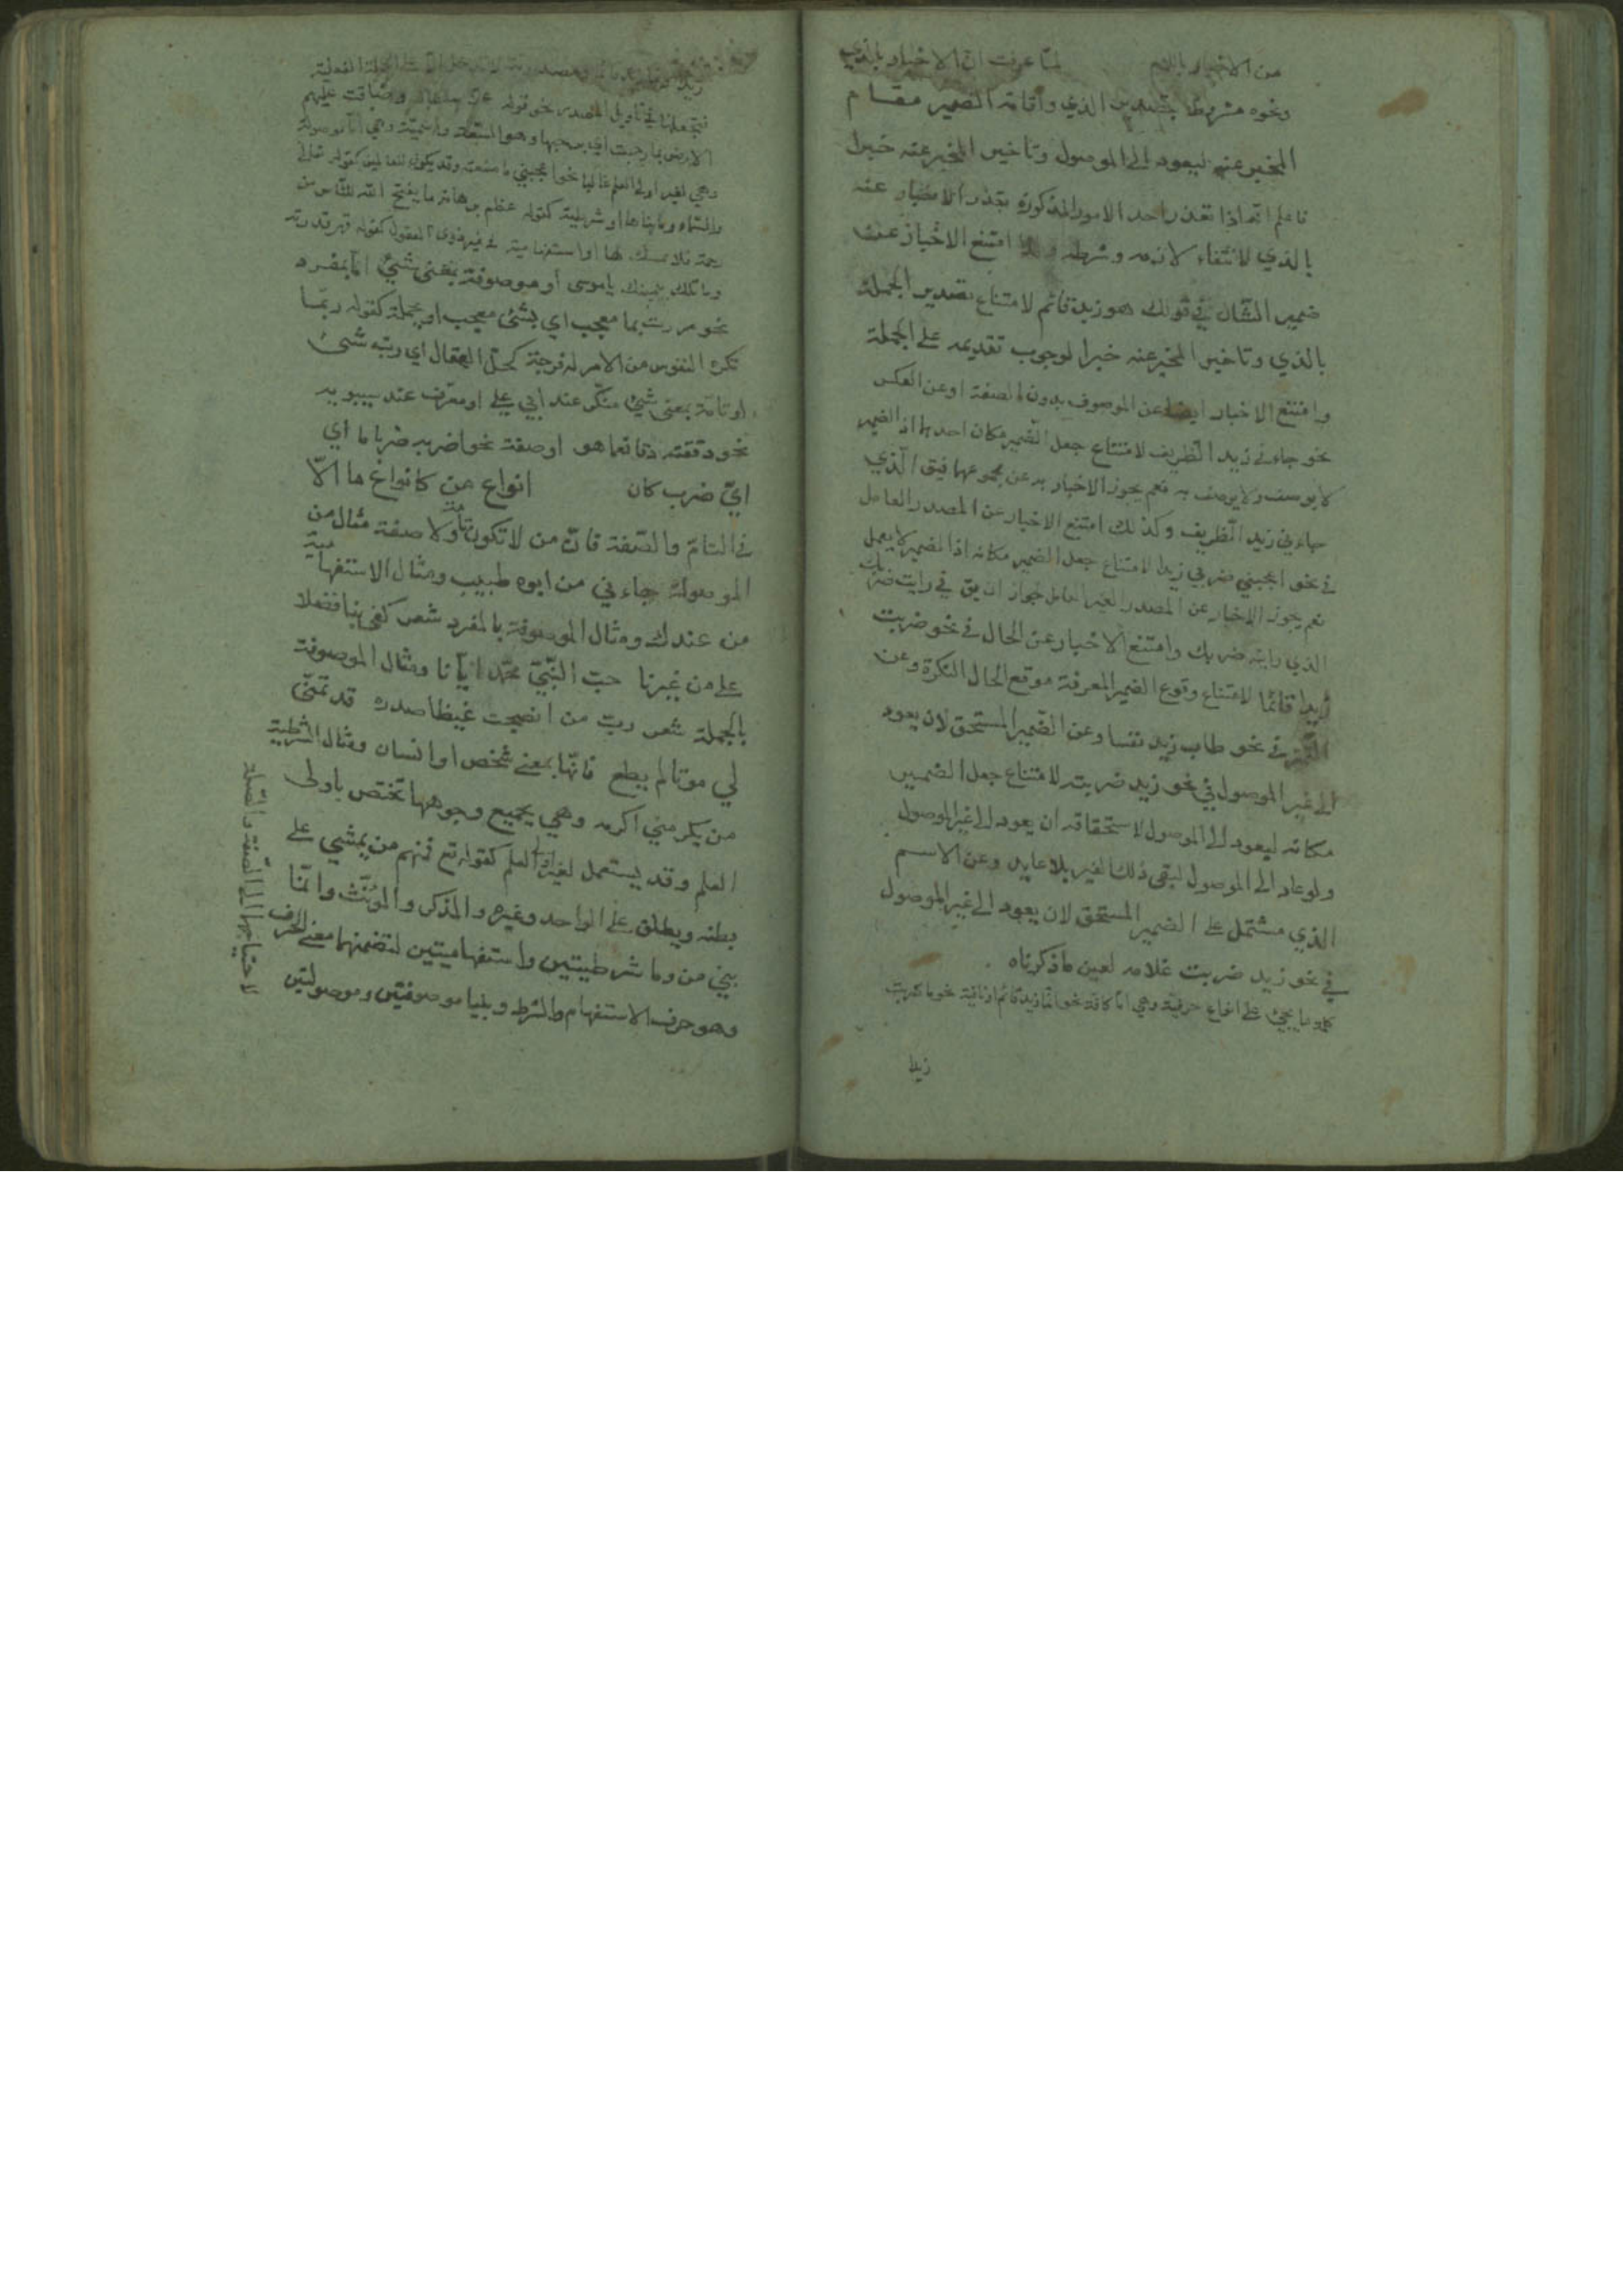 من الاخبار باللام لما عرفت ان الاخبار بالذي
ونحوه مشروط بتصدير الذي واقامة الضمير مقام
المخبر عنه ليعود الى الموصول وتاخير المخبر عنه خبرا
فاعلم انه اذا تعذر احد الامور المذكورة تعذر الاخبار عنه
بالذي لانتفاء لازمه وشرطه امتنع الاخبار عن
ضمير الشان في قولك هو زيد قائم لامتناع تصدير الجملة
بالذي وتاخير المخبر عنه خبرا لوجوب تقديمه على الجملة
وامتنع الاخبار ايضا عن الموصوف بدون الصفة او عن العكس
نحو جاءني زيد الظريف لامتناع جعل الضمير مكان احدهما اذ الضمير
لا يوصف ولا يوصف به نعم يجوز الاخبار به عن مجموعهما فيق الذي
جاءني زيد الظريف وكذلك امتنع الاخبار عن المصدر العامل
في نحو اعجبني ضربي زيدا لامتناع جعل الضمير مكانه اذ الضمير لا يعمل
نعم يجوز الاخبار عن المصدر الغير العامل لجواز ان يق في رايت ضربك
الذي رايته ضربك وامتنع الاخبار عن الحال في نحو ضربت
زيدا قائما لامتناع وقوع الضمير المعرفة موقع الحال النكرة وعن
التميز في نحو طاب زيد نفسا وعن الضمير المستحق لان يعود
الى غير الموصول في نحو زيد ضربته لامتناع جعل الضمير
مكانه ليعود الى الموصول لاستحقاقه ان يعود الى غير الموصول
ولو عاد الى الموصول لبقى ذلك الغير بلا عايد وعن الاسم
الذي مشتمل على الضمير المستحق لان يعود الى غير الموصول
في نحو زيد ضربت غلامه لعين ما ذكرناه
كلمة ما يجئ على انواع حرفية وهي اما كافة نحو انما زيد قائم او نافية نحو ما ضربت
زيدا
فتجعلها في تاويل المصدر نحو قوله وضاقت عليهم
الارض بما رحبت اي برحبها وهو واسمية وهي اما موصولة
وهي لغير اولى العلم غالبا نحو اعجبني ما صنعته وقد يكون للعالمين كقوله تعالى
والسماء وما بناها او شرطية كقوله عظم برهانه ما يفتح الله للناس من
رحمة فلا ممسك لها او استفهامية في غير ذوى العقول كقوله قدرته
وما تلك بيمينك يا موسى او موصوفة بمعنى شئ اما بمفرد
نحو مررت بما معجب اي بشئ معجب او بجملة كقوله ربما
تكره النفوس من الامر له فرجة كحل العقال اي رب شئ
او تامة بمعنى شئ منكر عند ابي علي او معرف عند سيبويه
نحو دققته دقا نعما هو او صفة نحو اضربه ضربا ما اي
اي ضرب كان انواع من كانواع ما الا
في التام والصفة فان من لا تكون تامة ولا صفة مثال من
الموصولة جاءني من ابوه طبيب ومثال الاستفهامية
من عندك ومثال الموصوفة بالمفرد شعر كفى بنا فضلا
على من غيرنا حب النبي محمد ايانا ومثال الموصوفة
بالجملة شعر رب من انضجت غيظا صدره قد تمنى
لي موتا لم يطع فانها بمعنى شخص او انسان ومثال الشرطية
من يكرمني اكرمه وهي بجميع وجوهها تختص باولى
العلم وقد يستعمل لغير اولى العلم كقوله تع فمنهم من يمشي على
بطنه ويطلق على الواحد وغيره والمذكر والمؤنث وانما
بني من وما شرطيتين واستفهاميتين لتضمنهما معنى الحرف
وهو حرف الاستفهام والشرط وبنيا موصوفتين وموصولتين
لاحتياجهما الى الصفة والصلة